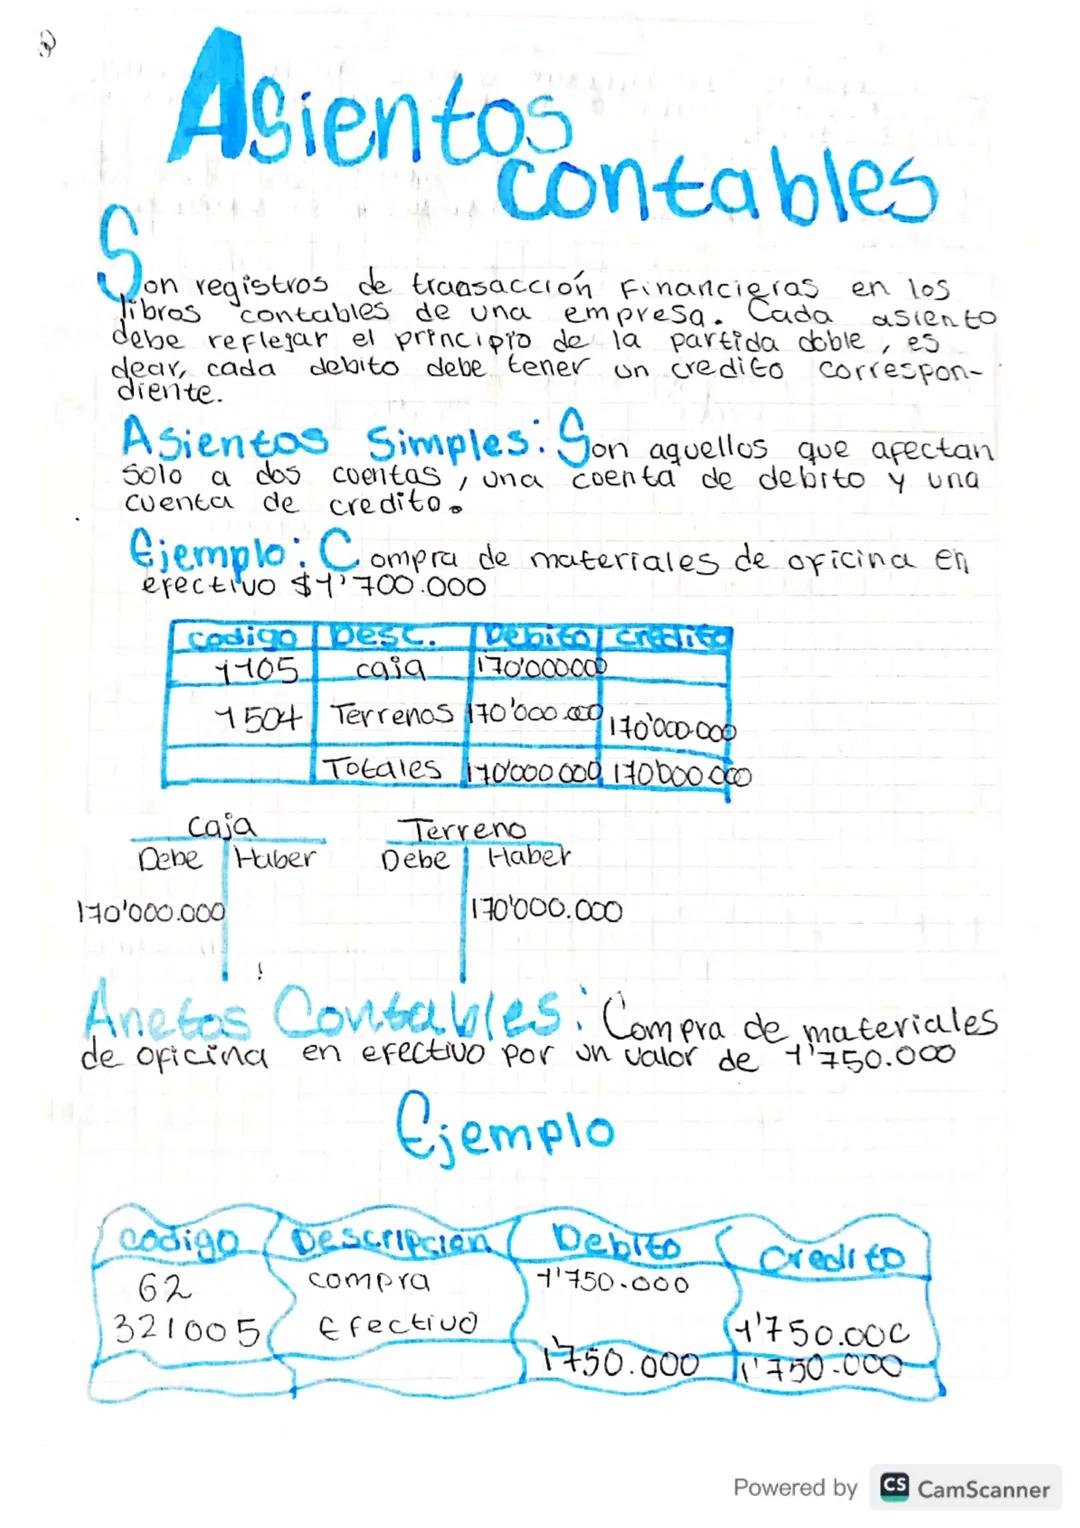 Asientos
contables
Son registros de transacción Financieras en los
libros contables de una empresa. Cada asiento
debe reflejar el principio de la partida doble, es
decir, cada debito debe tener un credito correspon-
diente.
Asientos Simples: Son aquellos que afectan
solo a dos cuentas, una cuenta de debito y una
cuenta de credito.
Ejemplo: Compra de materiales de oficina en
efectivo $1'700.000
codigo Desc. Debito credito
1105 caja 170'000000
1504 Terrenos 170'000.000 170'000.000
Totales 170'000.000 170'000.000
Caja Terreno
Debe Haber Debe Haber
170'000.000 170'000.000
Anetos Contables: Compra de materiales
de oficina en efectivo por un valor de 1'750.000
Ejemplo
codigo Descripcion Debito Credito
62 compra 1'750.000
321005 Efectivo 1'750.000
1'750.000 1'750.000
Powered by CS CamScanner